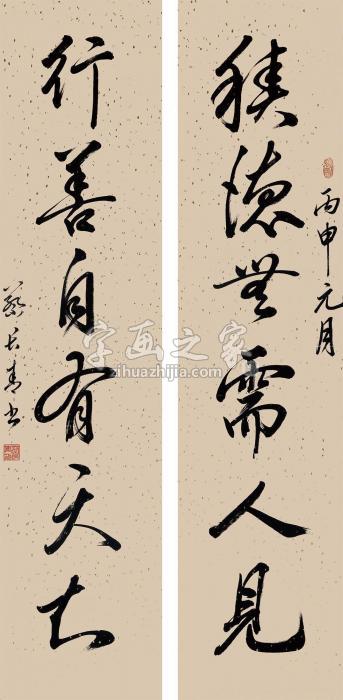 積德無需人見
丙申元月
行善自有天知
蔡長青书
字画之家
zihuazhijia.com